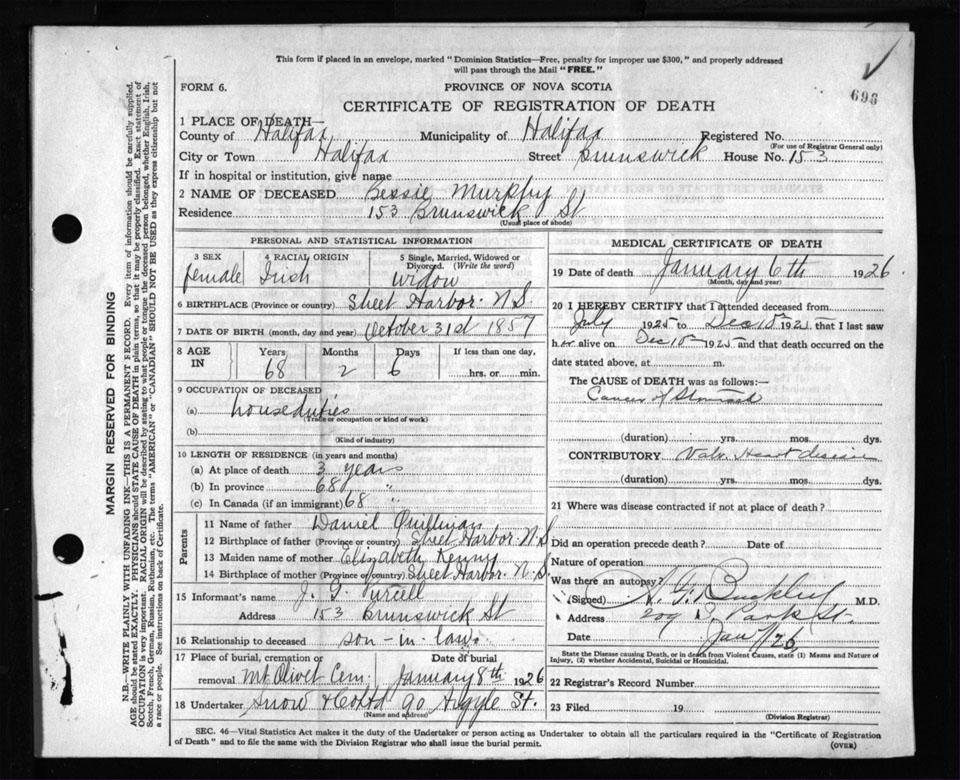 This form if placed in an envelope, marked "Dominion Statistics—Free, penalty for improper use $300," and properly addressed
will pass through the Mail "FREE."
693
FORM 6.
PROVINCE OF NOVA SCOTIA
CERTIFICATE OF REGISTRATION OF DEATH
1 PLACE OF DEATH—
County of Halifax, Municipality of Halifax Registered No.
(For use of Registrar General only)
City or Town Halifax Street Brunswick House No. 153
If in hospital or institution, give name
2 NAME OF DECEASED Bessie Murphy
Residence 153 Brunswick St
(Usual place of abode)
PERSONAL AND STATISTICAL INFORMATION
3 SEX 4 RACIAL ORIGIN 5 Single, Married, Widowed or
Divorced. (Write the word)
female Irish widow
6 BIRTHPLACE (Province or country) Sheet Harbor. N.S.
7 DATE OF BIRTH (month, day and year) October 31st 1857
8 AGE IN Years Months Days If less than one day,
68 2 6 hrs. or min.
9 OCCUPATION OF DECEASED
(a) houseduties
(Trade occupation or kind of work)
(b)
(Kind of industry)
10 LENGTH OF RESIDENCE (in years and months)
(a) At place of death 3 years
(b) In province 68 "
(c) In Canada (if an immigrant) 68 "
Parents
11 Name of father Daniel
12 Birthplace of father (Province or country) Sheet Harbor. N.S.
13 Maiden name of mother Elizabeth Kenny
14 Birthplace of mother (Province or country) Sheet Harbor. N.S.
15 Informant's name J. Purcell
Address 153 Brunswick St
16 Relationship to deceased son-in-law.
17 Place of burial, cremation or Date of burial
removal Mt. Olivet Cem. January 8th 1926
18 Undertaker Snow & Co Ltd 90 Argyle St.
(Name and address)
MEDICAL CERTIFICATE OF DEATH
19 Date of death January 6th 1926.
(Month, day and year)
20 I HEREBY CERTIFY that I attended deceased from
July 1925 to Dec 1925 that I last saw
her alive on Dec 1925 and that death occurred on the
date stated above, at m.
The CAUSE of DEATH was as follows:—
Cancer of Stomach
(duration) yrs. mos. dys.
CONTRIBUTORY Valv. Heart disease
(duration) yrs. mos. dys.
21 Where was disease contracted if not at place of death?
Did an operation precede death? Date of
Nature of operation
Was there an autopsy?
(Signed) Buckley M.D.
Address 209 Park St.
Date Jan 7/26
State the Disease causing Death, or in death from Violent Causes, state (1) Means and Nature of
Injury, (2) whether Accidental, Suicidal or Homicidal.
22 Registrar's Record Number
23 Filed 19
(Division Registrar)
SEC. 46—Vital Statistics Act makes it the duty of the Undertaker or person acting as Undertaker to obtain all the particulars required in the "Certificate of Registration
of Death" and to file the same with the Division Registrar who shall issue the burial permit.
(OVER)
MARGIN RESERVED FOR BINDING
N.B.—WRITE PLAINLY WITH UNFADING INK—THIS IS A PERMANENT RECORD. Every item of information should be carefully supplied.
AGE should be stated EXACTLY. PHYSICIANS should STATE CAUSE OF DEATH in plain terms, so that it may be properly classified. Exact statement of
OCCUPATION is very important. RACIAL ORIGIN will be described by stating to what people or tongue the deceased person belonged, whether English, Irish,
Scotch, French, German, Russian, Ruthenian, etc. The terms "AMERICAN" or "CANADIAN" SHOULD NOT BE USED as they express citizenship but not
a race or people. See instructions on back of Certificate.